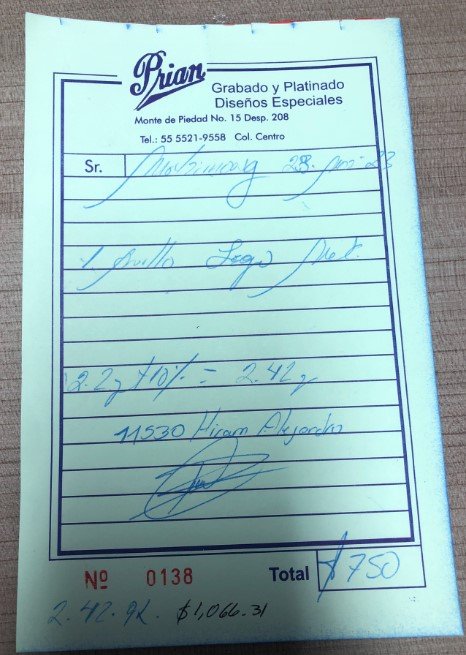 Prian
Grabado y Platinado
Diseños Especiales
Monte de Piedad No. 15 Desp. 208
Tel.: 55 5521-9558 Col. Centro
Sr. 28
1. Anillo Logo
2.2g +10% = 2.42g
11530 Hiram Alejandro
Nº 0138 Total $750
2.42. 9K. $1,066.31